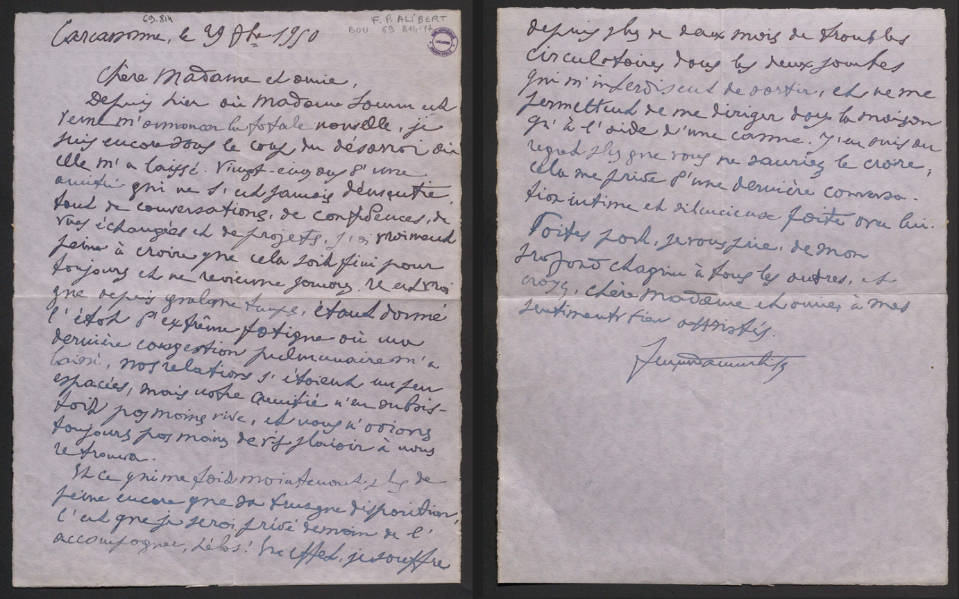 69.814
F. P. ALIBERT
BOU 69 814-17
Carcassonne, le 29 8bre 1950
Chère Madame et amie,
Depuis hier où Madame est
venu m'annoncer la fatale nouvelle, je
suis encore sous le coup du désarroi où
elle m'a laissé. Vingt-cinq ans d'une
amitié qui ne s'est jamais démentie,
tant de conversations, de confidences, de
vues échangées et de projets, j'ai vraiment
peine à croire que cela soit fini pour
toujours et ne revienne jamais. Il est vrai
que depuis quelque temps, étant donné
l'état d'extrême fatigue où une
dernière congestion pulmonaire m'a
laissé, nos relations s'étaient un peu
espacées, mais notre amitié n'en subsis-
tait pas moins vive, et nous n'avions
toujours pas moins de vif plaisir à nous
retrouver.
Et ce qui me fait maintenant plus de
peine encore que sa brusque disparition,
c'est que je serai privé demain de l'
accompagner, hélas! En effet, je souffre
depuis plus de deux mois de troubles
circulatoires dans les deux jambes
qui m'interdisent de sortir, et ne me
permettent de me diriger dans la maison
qu'à l'aide d'une canne. J'en suis au
regret plus que vous ne sauriez le croire,
cela me prive d'une dernière conversa-
tion intime et silencieuse faite avec lui.
Faites part, je vous prie, de mon
profond chagrin à tous les autres, et
croyez, chère Madame et amie, à mes
sentiments bien attristés.